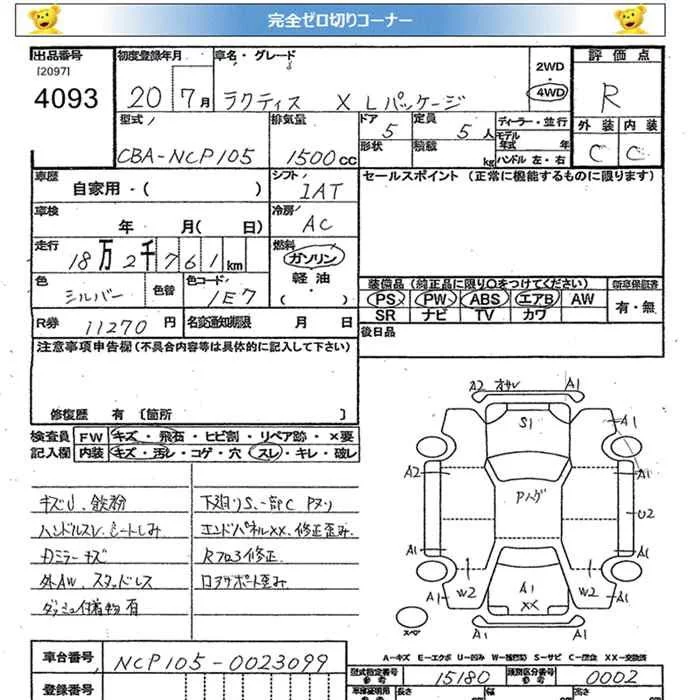 完全ゼロ切りコーナー
出品番号 初度登録年月 車名・グレード 2WD 評価点
[2097]
4093 20 7月 ラクティス X Lパッケージ 4WD R
型式 排気量 ドア 5 定員 5人 ディーラー・並行 外装 内装
CBA-NCP105 1500cc 形状 積載 kg モデル年式 年 ハンドル 左・右 C C
車歴 自家用・( ) シフト IAT セールスポイント (正常に機能するものに限ります)
車検 年 月( 日) 冷房 AC
走行 18万2千761km 燃料 ガソリン 軽油 ・( )
色 シルバー 色替 色コード 1E7 装備品 (純正品に限り○をつけてください) 新車保証書
PS PW ABS エアB AW 有・無
SR ナビ TV カワ
R券 11270円 名変通知期限 月 日 後日品
注意事項申告欄(不具合内容等は具体的に記入して下さい)
修復歴 有 [箇所 ]
検査員 FW キズ・飛石・ヒビ割・リペア跡・×要
記入欄 内装 キズ・汚レ・コゲ・穴 スレ・キレ・破レ
キズU、鉄粉
ハンドルスレ シートしみ
カミラーキズ
外AW、スタッドレス
ダッシュ付着物有
下廻りS、一部C Pヌリ
エンドパネルXX、修正歪み
Rフロア修正
ロアサポート歪み
A2 オサレ A1
S1 A1
A2 Pハゲ A1
U2
A1 A1
W2 A1 W2
A1 XX A1
A1
スペア
A-キズ E-エクボ U-凹み W-補修跡 S-サビ C-腐食 XX-交換済
車台番号 NCP105-0023099 型式指定番号 参考 15180 類別区分番号 参考 0002
登録番号 車検証明用 長さ 幅 高さ